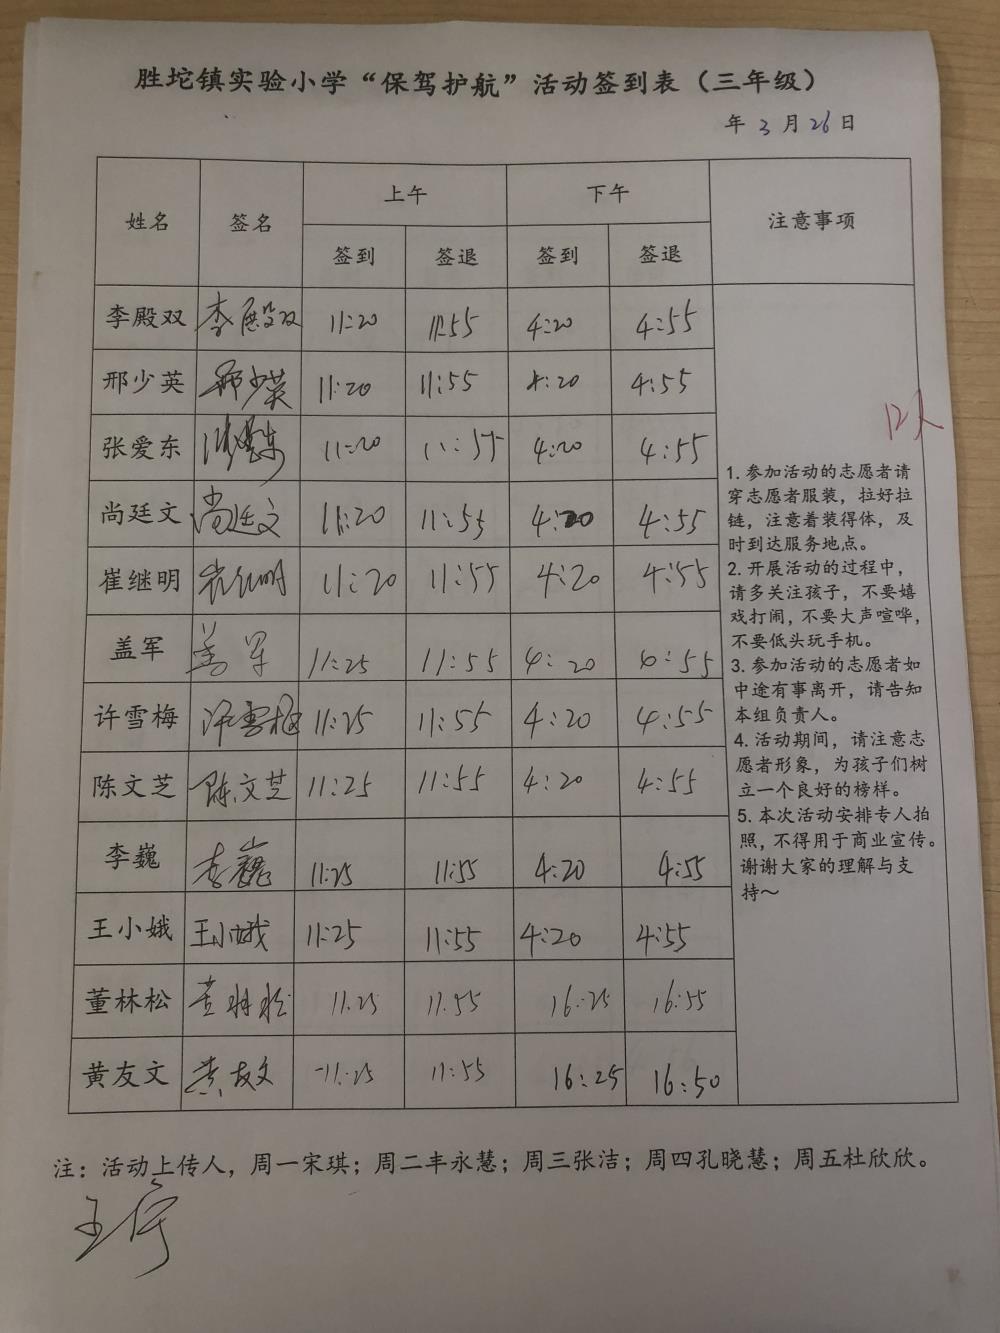 胜坨镇实验小学“保驾护航”活动签到表（三年级）
年 3 月 26 日
姓名 签名 上午 下午 注意事项
签到 签退 签到 签退
李殿双 李殿双 11:20 11:55 4:20 4:55
邢少英 邢少英 11:20 11:55 4:20 4:55
张爱东 张爱东 11:20 11:55 4:20 4:55
尚廷文 尚廷文 11:20 11:55 4:20 4:55
崔继明 崔继明 11:20 11:55 4:20 4:55
盖军 盖军 11:25 11:55 4:20 4:55
许雪梅 许雪梅 11:25 11:55 4:20 4:55
陈文芝 陈文芝 11:25 11:55 4:20 4:55
李巍 李巍 11:25 11:55 4:20 4:55
王小娥 王小娥 11:25 11:55 4:20 4:55
董林松 董林松 11:25 11:55 16:25 16:55
黄友文 黄友文 11:25 11:55 16:25 16:50
12人
1. 参加活动的志愿者请
穿志愿者服装，拉好拉
链，注意着装得体，及
时到达服务地点。
2. 开展活动的过程中，
请多关注孩子，不要嬉
戏打闹，不要大声喧哗，
不要低头玩手机。
3. 参加活动的志愿者如
中途有事离开，请告知
本组负责人。
4. 活动期间，请注意志
愿者形象，为孩子们树
立一个良好的榜样。
5. 本次活动安排专人拍
照，不得用于商业宣传。
谢谢大家的理解与支
持～
注：活动上传人，周一宋琪；周二丰永慧；周三张洁；周四孔晓慧；周五杜欣欣。